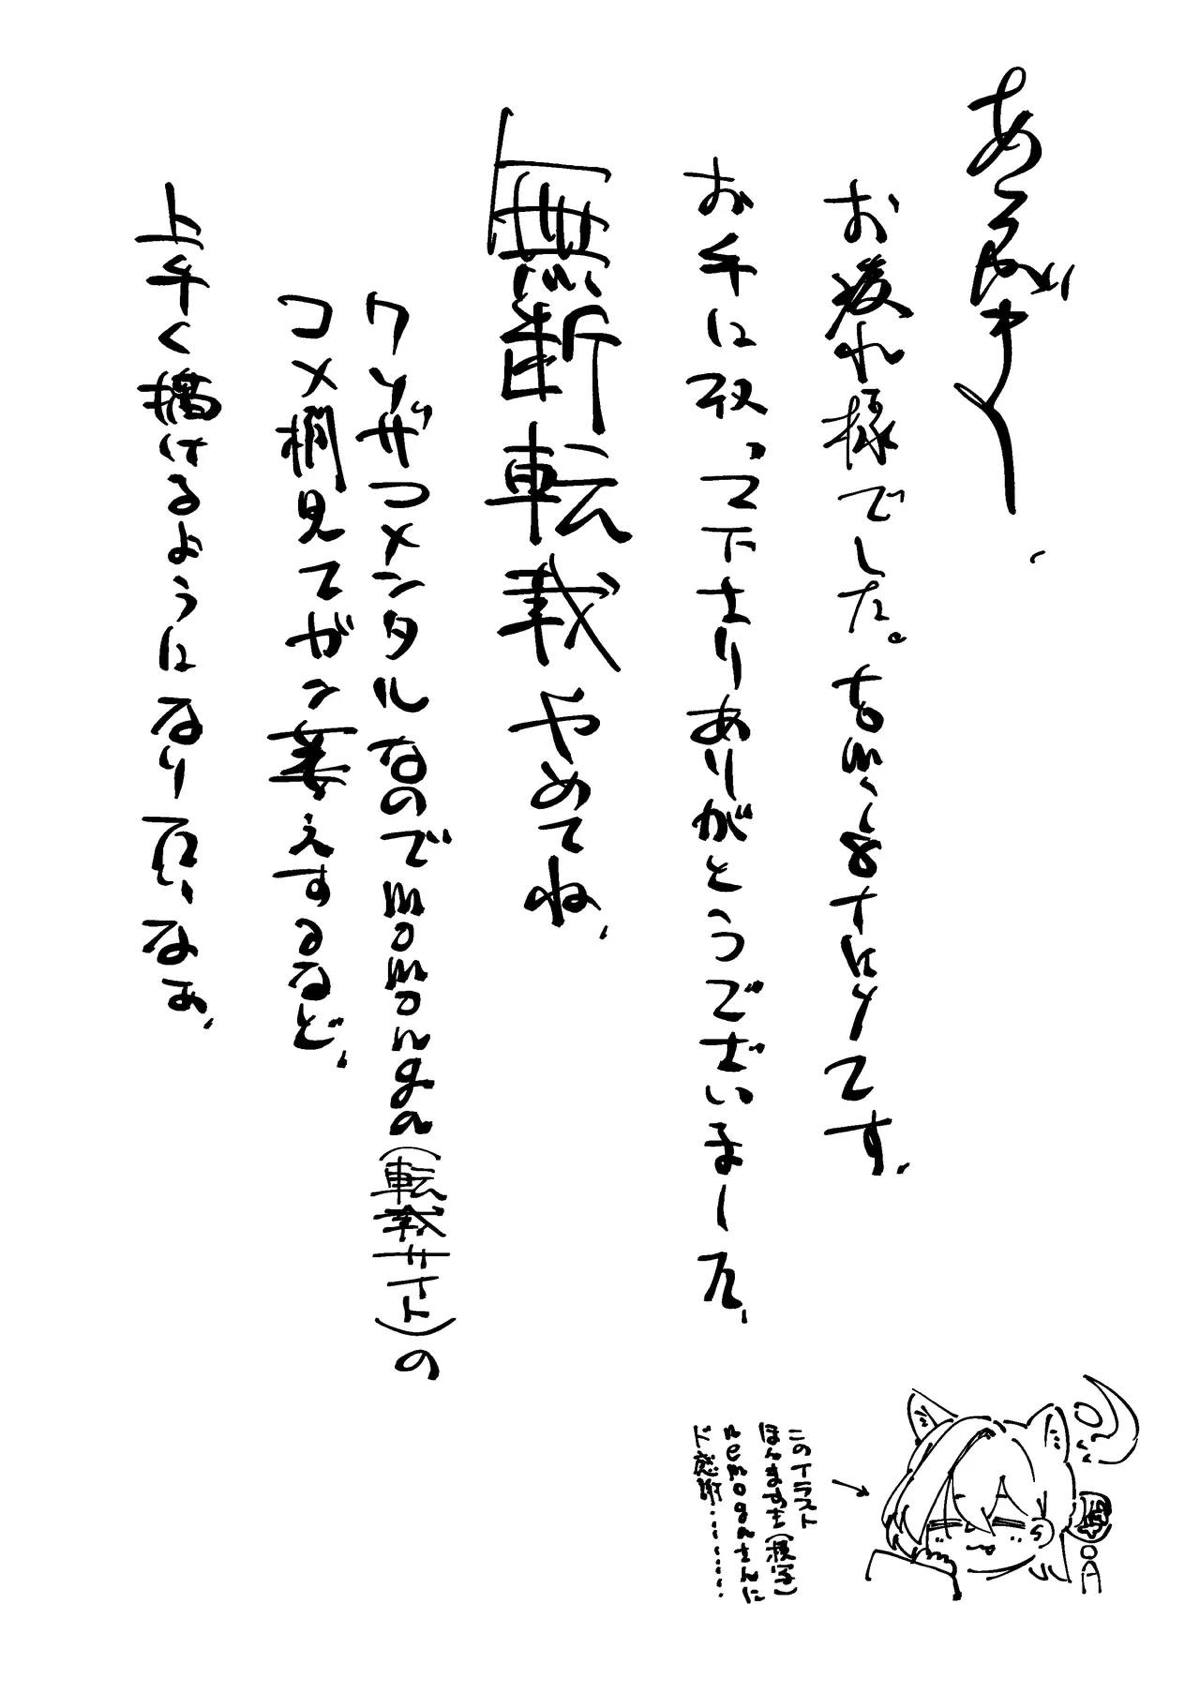 あとがき
お疲れ様でした。
です。
お手に取って下さりありがとうございました、
無断転載やめてね、
クソザコメンタルなのでmomonga(転載サイト)の
コメ欄見てガン萎えするなど、
上手く描けるようになり たいなぁ、
このイラスト
ほんますき(模写)
nemogaさんに
ド感謝………